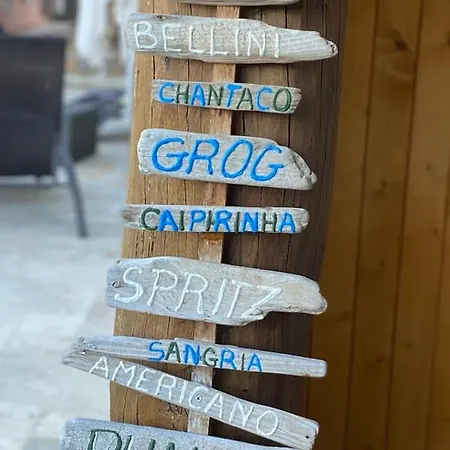 BELLINI
CHANTACO
GROG
CAIPIRINHA
SPRITZ
SANGRIA
AMERICANO